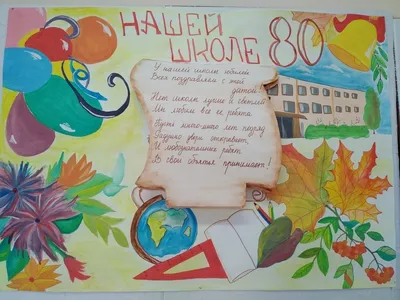 НАШЕЙ
ШКОЛЕ 80
У нашей школы юбилей
Всех поздравляем с этой
датой!
Нет школы лучше и светлей
Мы любим все её ребята
Пусть много-много лет подряд
Радушно двери открывает,
И любознательных ребят
В свои объятья принимает!